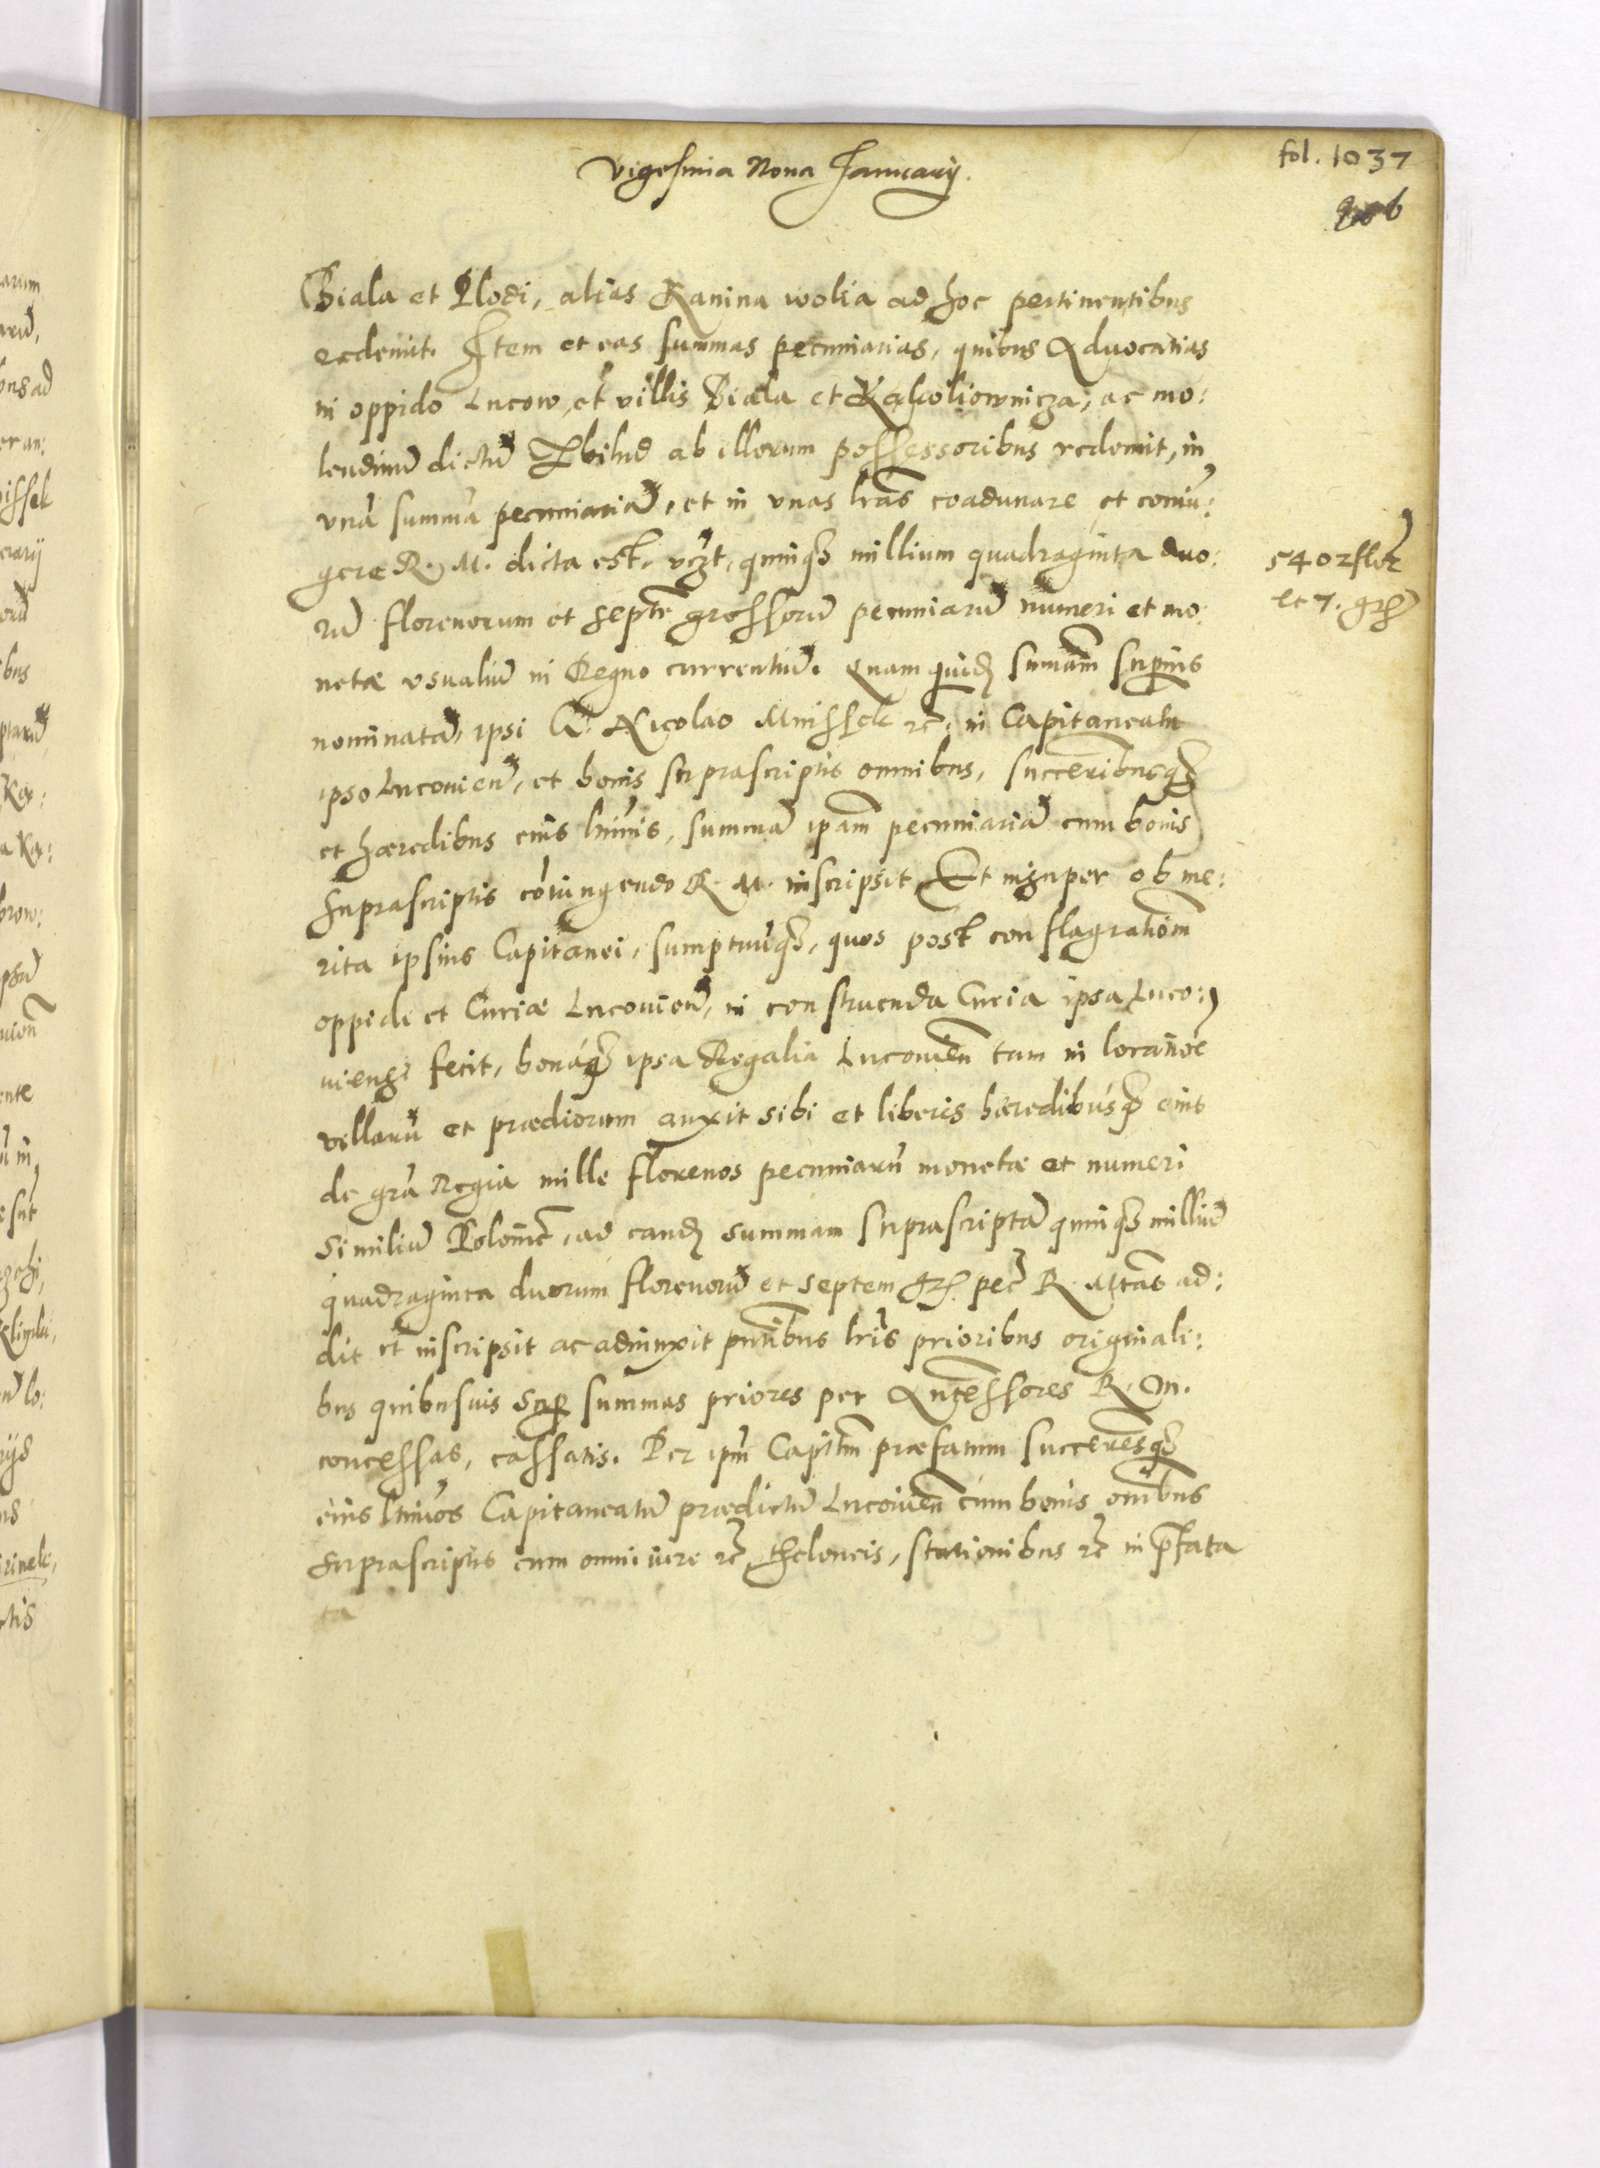 fol. 1037
Vigesima Nona January.
Biala et Plodi, alias Kanina wolia ad hoc pertinentibus
redemit. Item et eas summas pecuniarias, quibus Aduocatias
in oppido Lucow, et villis Biala et Rakoliownicza, ac mo:
lendinū dictū ab illorum possessoribus redemit, in
vnā summā pecuniariā, et in vnas lrās coadunare et coniū:
gere R. M. dicta est, vczt, quinq3 millium quadraginta duo:
rū florenorum et septē grossorū pecuniarū numeri et mo:
netæ vsualiū in Regno currentiū. Quam quidē sumām superius
nominatā, ipsi G. Nicolao Mnissek rc. in Capitaneatu
ipso Lucouien̄, et bonis suprascriptis omnibus, succeribusq3
et hæredibus eius ltimis, summā ipam pecuniariā cum bonis
suprascriptis cōiungendo R. M. inscripsit. Et insuper ob me:
rita ipsius Capitanei, sumptuūq3, quos post conflagrationem
oppidi et Curiæ Lucouien̄, in construenda Curia ipsa Luco:
uiensi fecit, bonáq3 ipsa Regalia Lucouien̄ tam in locatioē
villarū et prædiorum auxit sibi et liberis hæredibúsq3 eius
de grā Regia mille florenos pecuniarū monetæ et numeri
similiū Polonict, ad eandē summam suprascriptā quinq3 milliū
quadraginta duorum florenorū et septem gr. pec̄ R. Mtas ad:
dit et inscripsit ac adiunxit pntibus lris prioribus originali:
bus quibusuis sup summas priores per Antecessores R. M.
concessas, cassatis. Per ipm Capitm præfatum succeresq3
eius ltimos Capitaneatū prædictū Lucouien̄ cum bonis omibus
suprascriptis cum omni iure rc theloneis, stationibus rc in p̄fata
5402 flor
et 7. gr